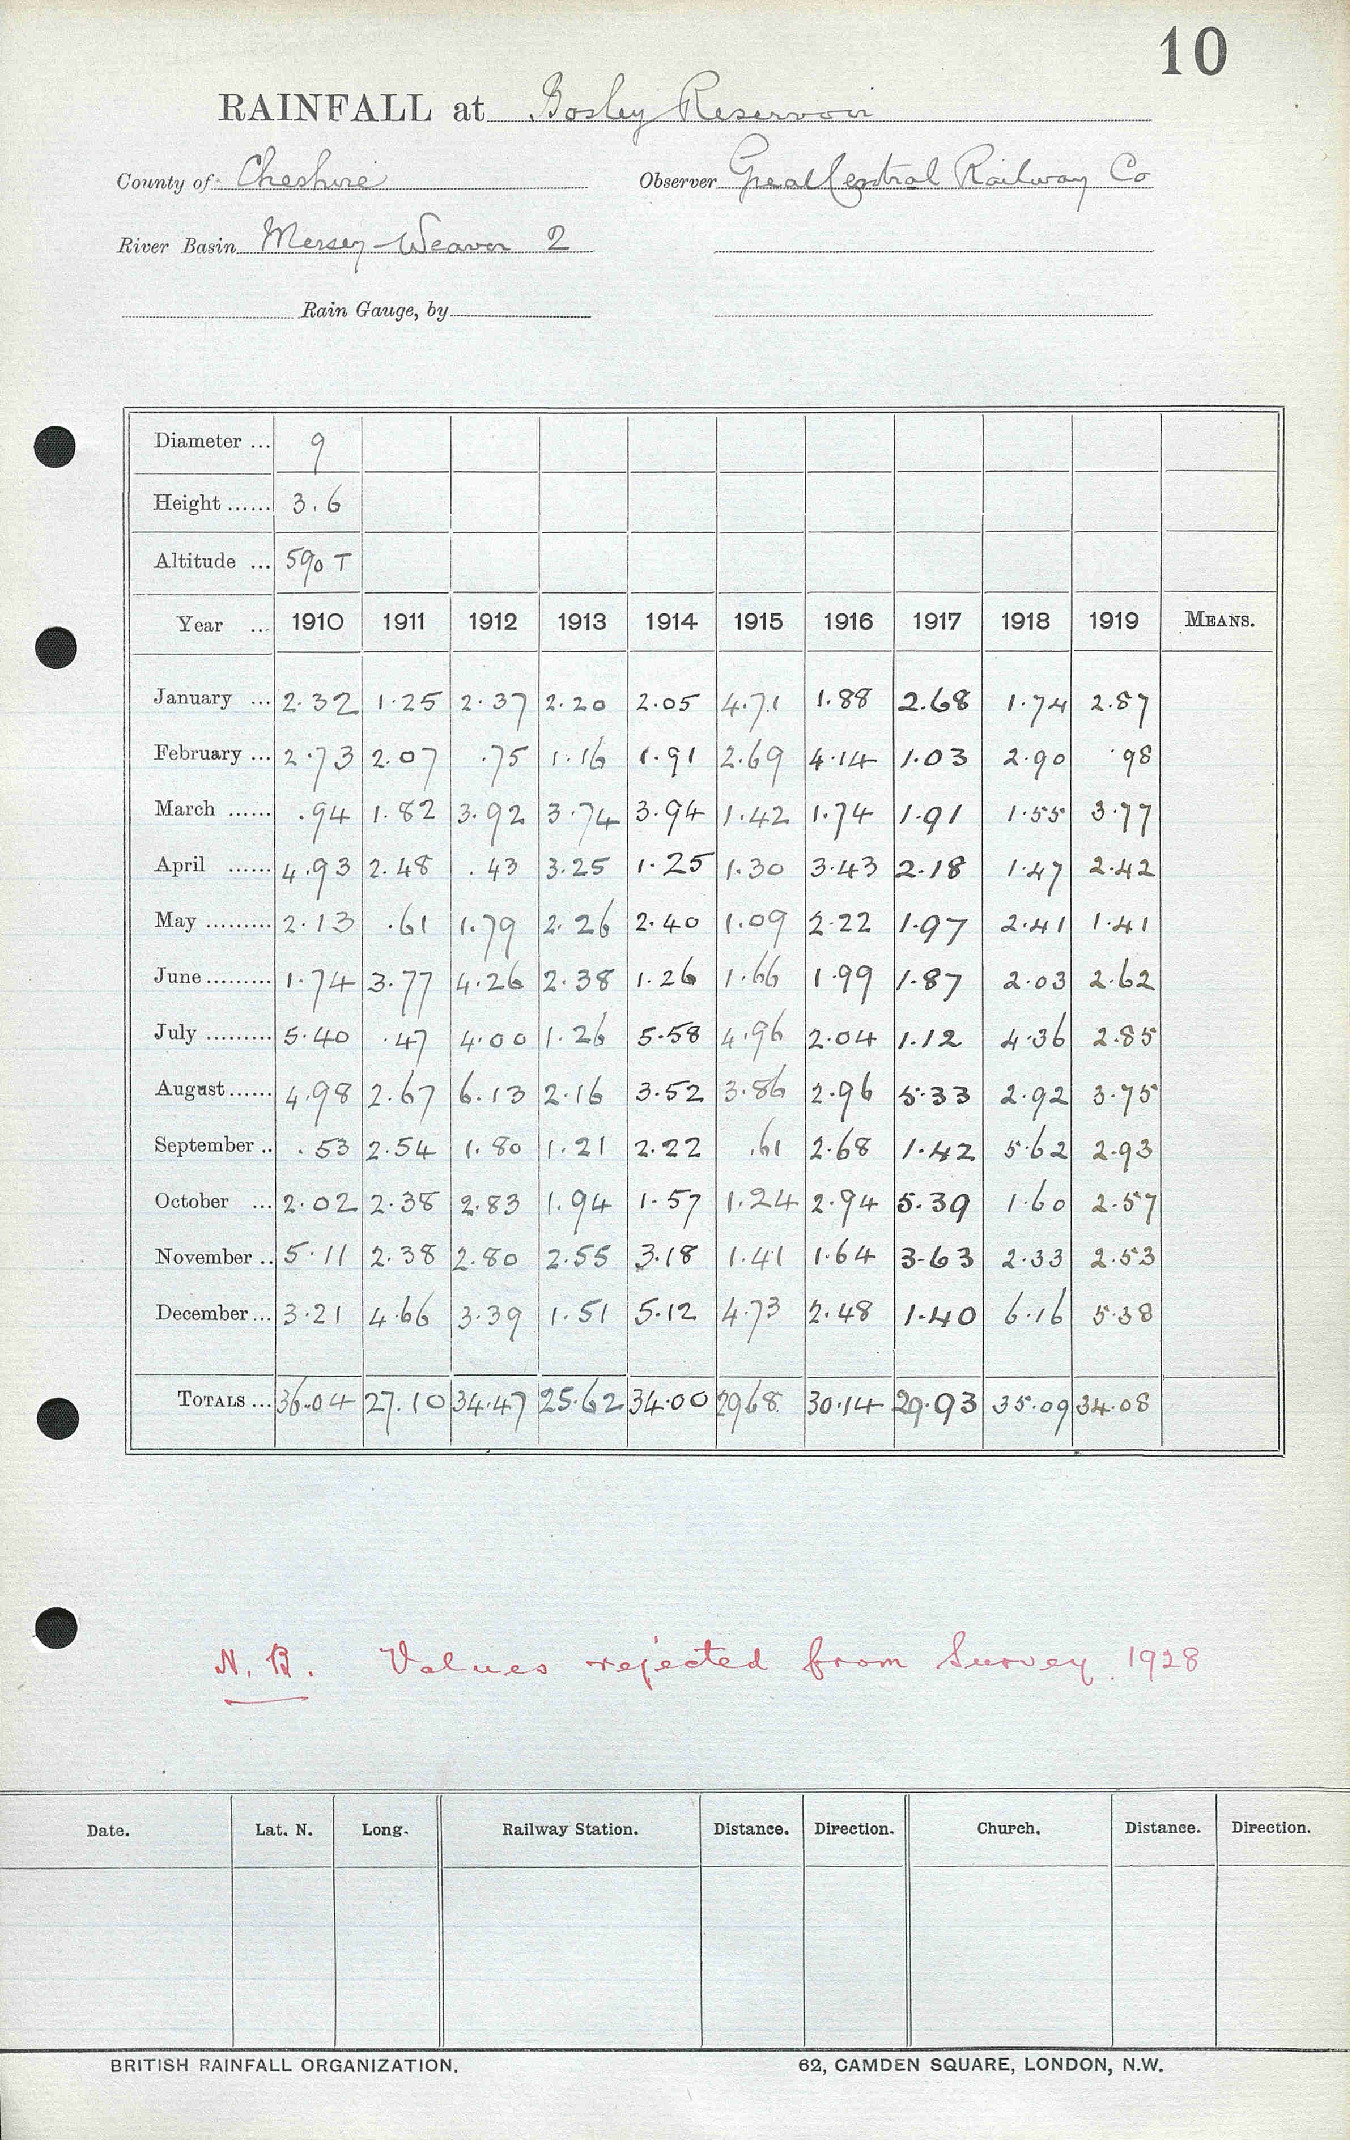 10
RAINFALL at Bosley Reservoir
County of Cheshire Observer Great Central Railway Co
River Basin Mersey-Weaver 2
Rain Gauge, by
Diameter ... 9
Height ...... 3.6
Altitude ... 590 T
Year ... 1910 1911 1912 1913 1914 1915 1916 1917 1918 1919 MEANS.
January ... 2.32 1.25 2.37 2.20 2.05 4.71 1.88 2.68 1.74 2.87
February ... 2.73 2.07 .75 1.16 1.91 2.69 4.14 1.03 2.90 .98
March ...... .94 1.82 3.92 3.74 3.94 1.42 1.74 1.91 1.55 3.77
April ...... 4.93 2.48 .43 3.25 1.25 1.30 3.43 2.18 1.47 2.42
May ......... 2.13 .61 1.79 2.26 2.40 1.09 2.22 1.97 2.41 1.41
June ......... 1.74 3.77 4.26 2.38 1.26 1.66 1.99 1.87 2.03 2.62
July ......... 5.40 .47 4.00 1.26 5.58 4.96 2.04 1.12 4.36 2.85
August ...... 4.98 2.67 6.13 2.16 3.52 3.86 2.96 5.33 2.92 3.75
September .. .53 2.54 1.80 1.21 2.22 .61 2.68 1.42 5.62 2.93
October ... 2.02 2.38 2.83 1.94 1.57 1.24 2.94 5.39 1.60 2.57
November .. 5.11 2.38 2.80 2.55 3.18 1.41 1.64 3.63 2.33 2.53
December ... 3.21 4.66 3.39 1.51 5.12 4.73 2.48 1.40 6.16 5.38
TOTALS ... 36.04 27.10 34.47 25.62 34.00 29.68 30.14 29.93 35.09 34.08
N.B. Values rejected from Survey 1928
Date. Lat. N. Long. Railway Station. Distance. Direction. Church. Distance. Direction.
BRITISH RAINFALL ORGANIZATION. 62, CAMDEN SQUARE, LONDON, N.W.